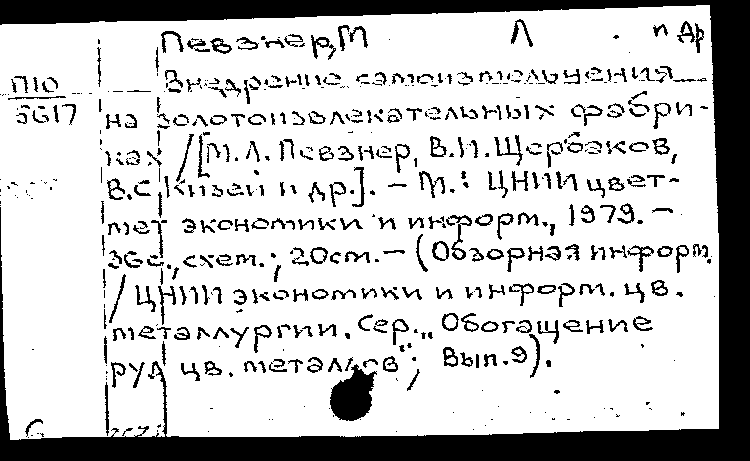 Певзнер, М Л и др
П10
3617
Внедрение самоизмельчения
на золотоизвлекательных фабри-
ках /[М.Л. Певзнер, В.И. Щербаков,
В.С. и др.]. – М.: ЦНИИ цвет-
мет экономики и информ., 1979. –
36с., схем.; 20см. – (Обзорная информ.
/ ЦНИИ экономики и информ. цв.
металлургии. Сер. „Обогащение
руд цв. металлов"; Вып. 9).